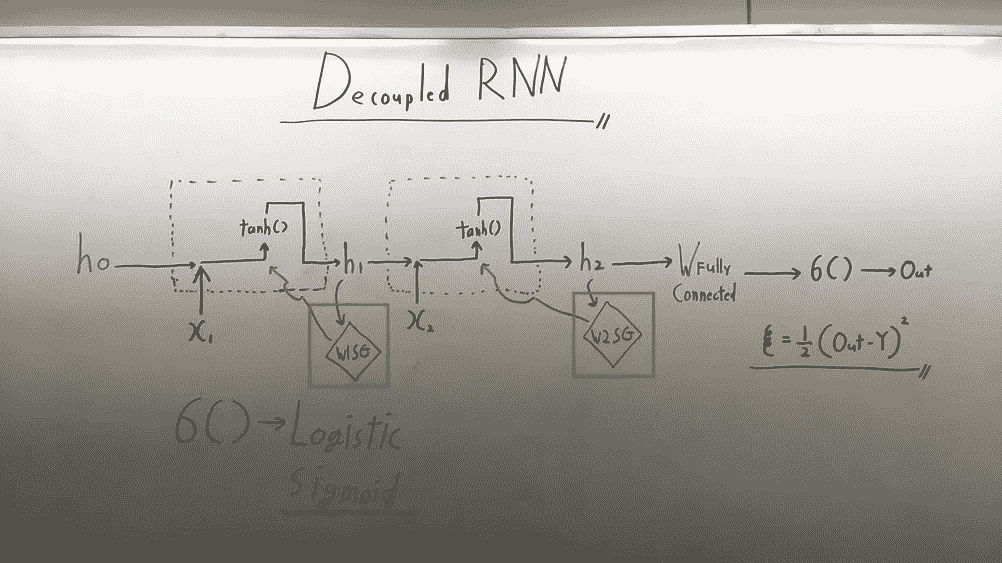 Decoupled RNN
tanh()
tanh()
h0
h1
h2
W Fully Connected
6()
Out
X1
X2
W1SG
W2SG
ξ = 1/2 (Out-Y)²
6() → Logistic
Sigmoid